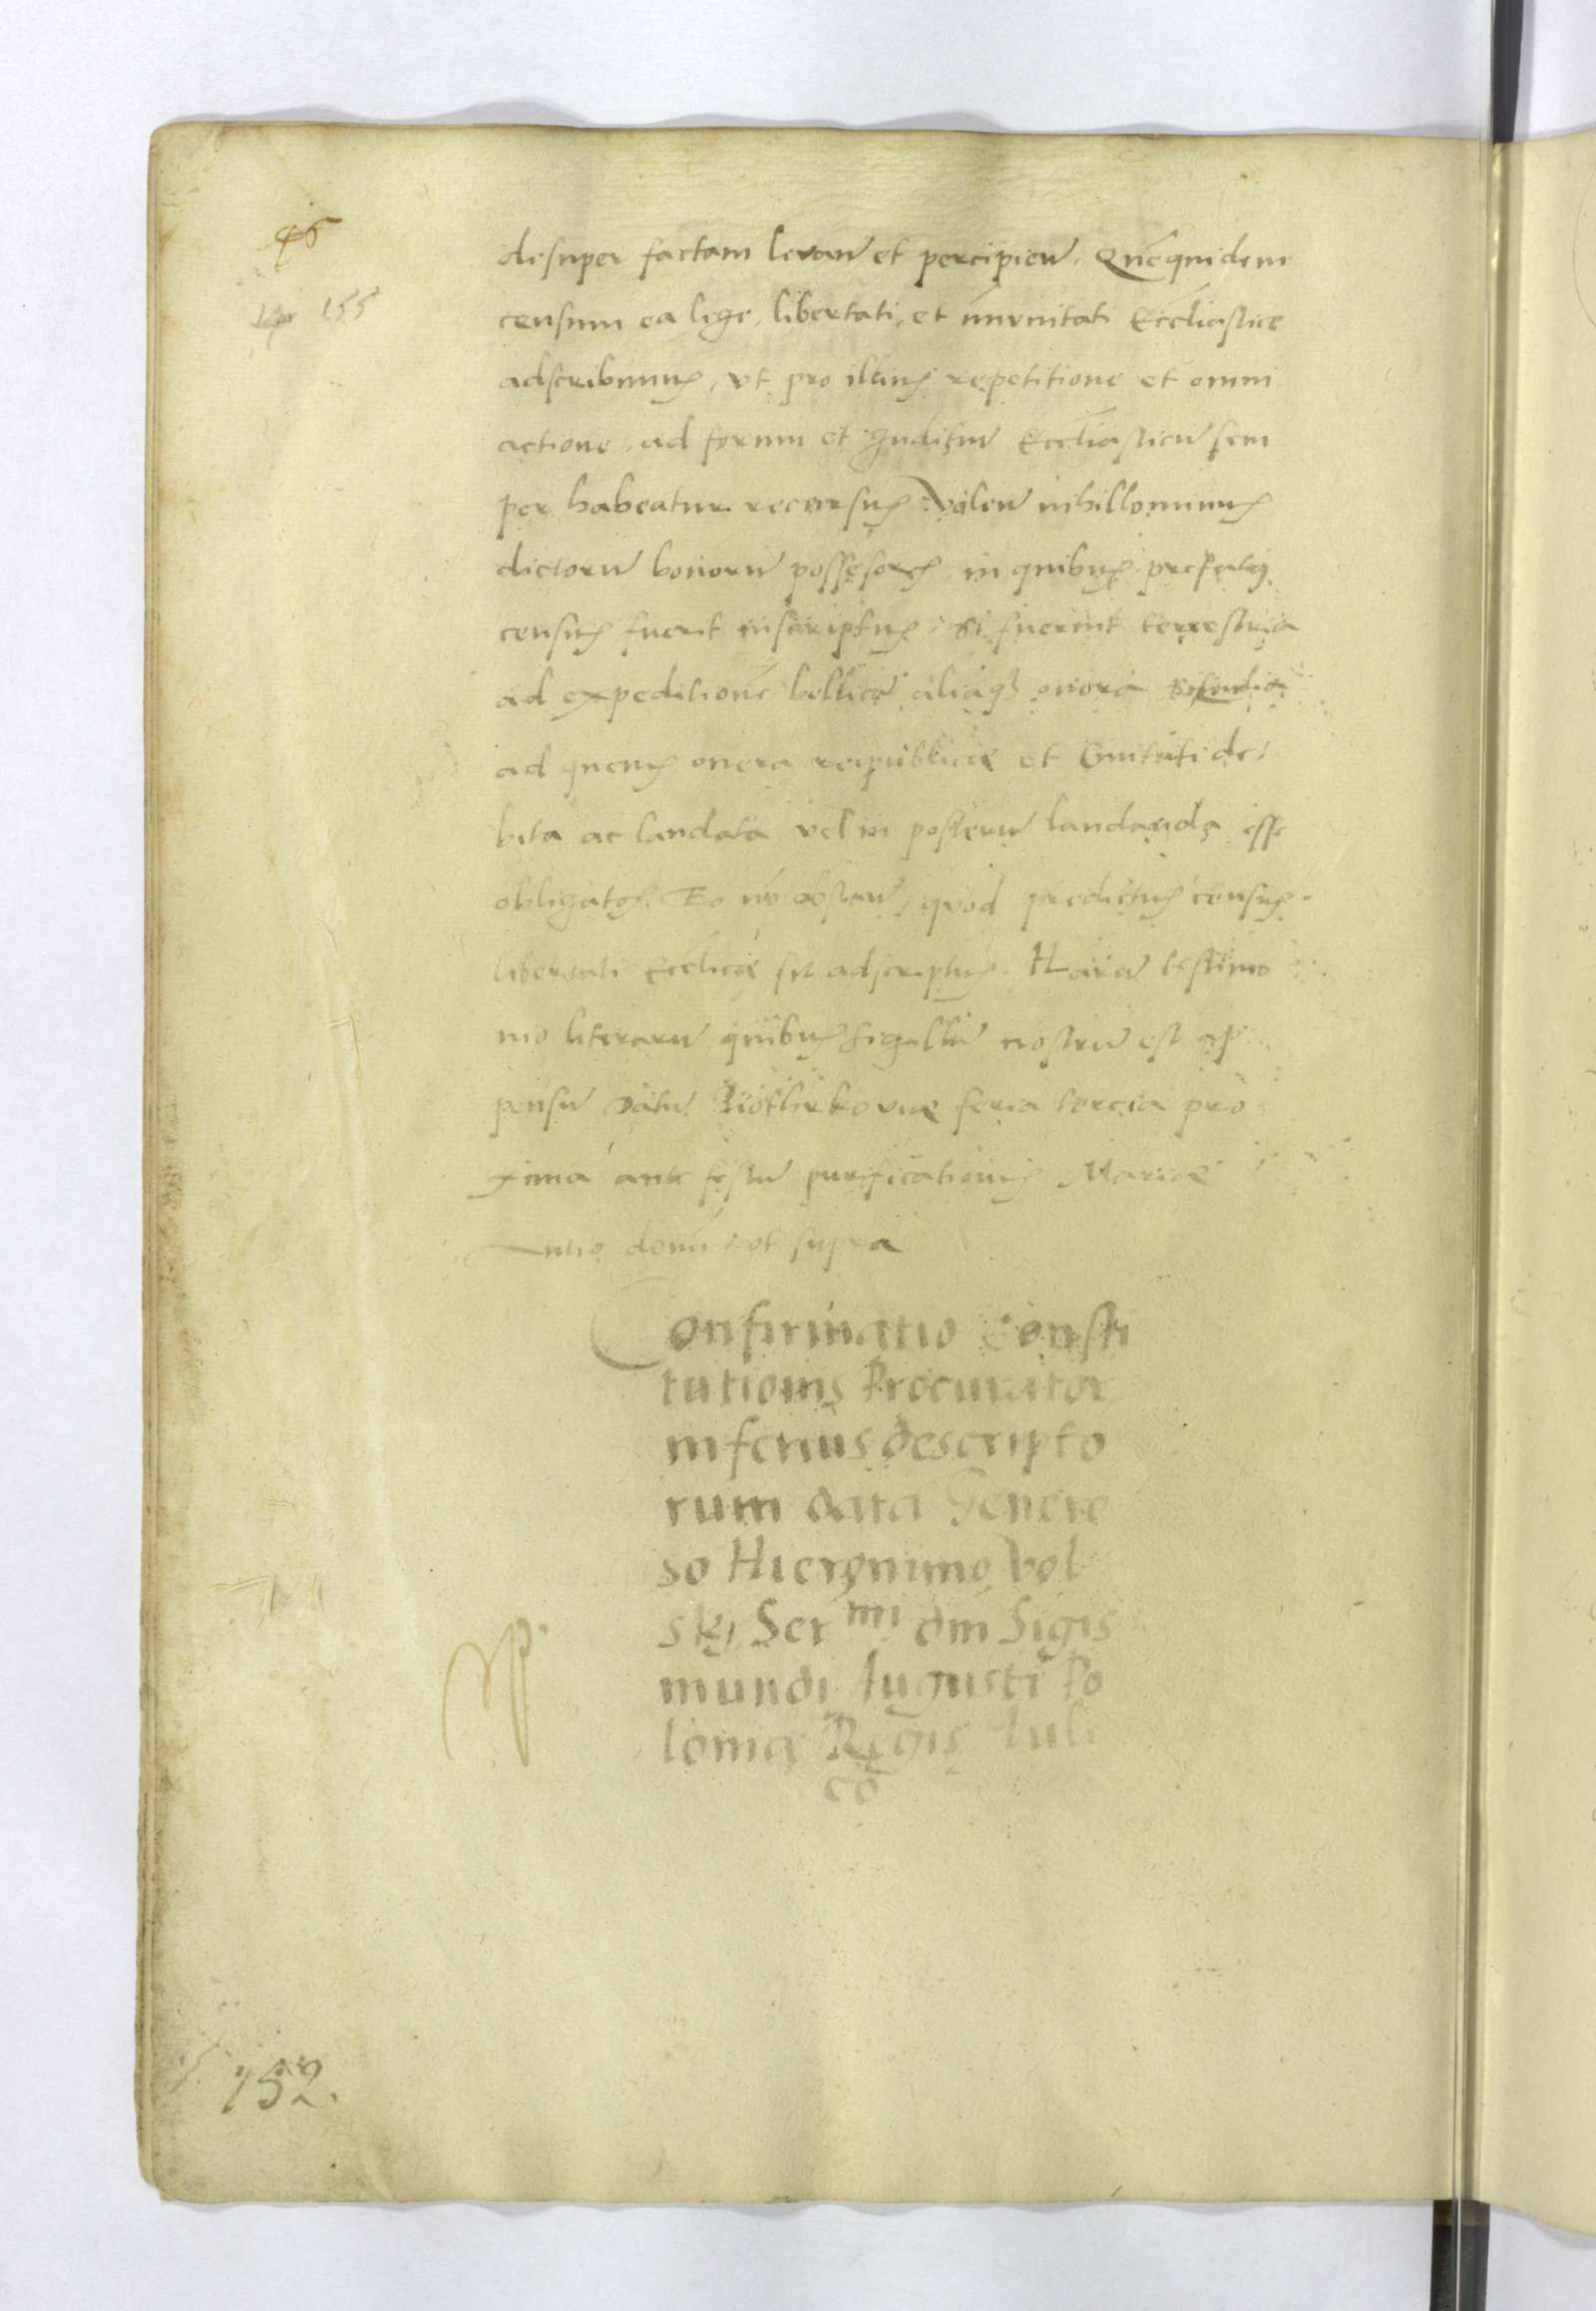 46
155
desuper factam levan̄ et percipien̄. Quēquidem
censum ea lege, libertati, et im̄unitati Eccl̄iastice
adscribimus, vt pro illius repetitione et omni
actione, ad forum et Iuditiū Eccl̄iasticū sem
per habeatur recursus. Volen̄ nihillominus
dictorū bonorū possesores in quibus prefatus
census fuerit inscriptus, Si fuerint terrestria
ad expeditionē bellicā aliaq3 onera
ad quenis onera reipublicæ et Civitati de
bita ac laudata vel in posterū laudanda esse
obligatos. Eo nō obstan̄, quod predictus census
libertati Eccl̄icæ sit adscriptus. Harū testimo
nio literarū quibus sigillū nostrū est ap
pensū Datū Piothrkoviæ feria tercia pro
xima ante festū purificationis Mariæ
Anno domī vt supra
Confirmatio Consti
tutionis Procurator
inferius descripto
rum data Genero
so Hieronimo Vol
skj Serᵐⁱ dm̄ Sigis
mundi Augusti Po
loniæ Regis
152.